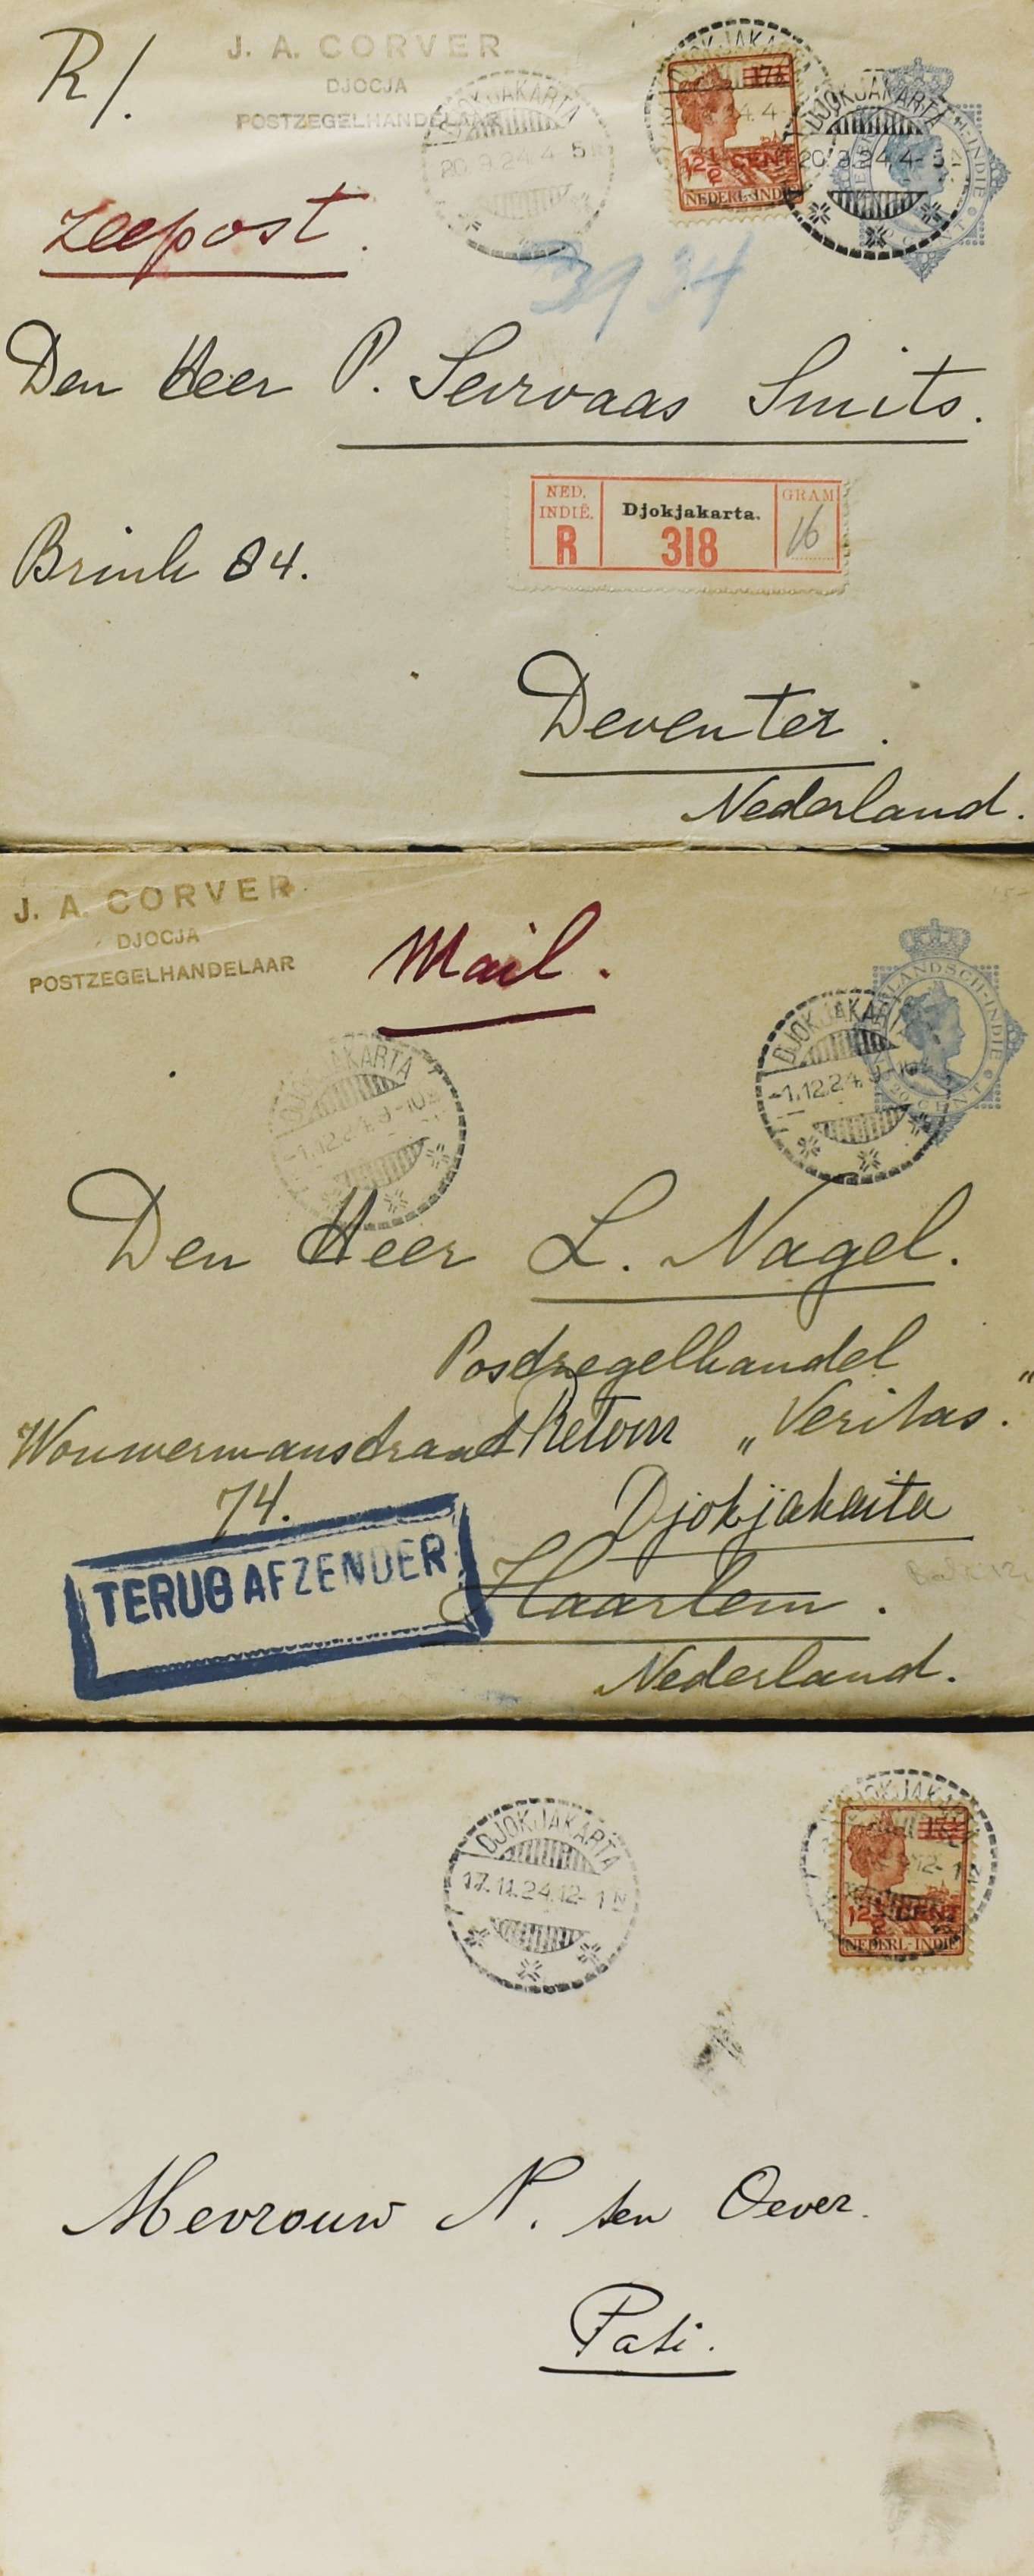 R/.
J. A. CORVER
DJOCJA
POSTZEGELHANDELAAR
DJOKJAKARTA
20.9.24.4-5
17½
12½ CENT
NEDERL-INDIE
DJOKJAKARTA
20.9.24.4-5
zeepost.
3934
Den Heer P. Servaas Smits.
NED. INDIË.
R
Djokjakarta.
318
GRAM
16
Brink 84.
Deventer.
Nederland.
J. A. CORVER
DJOCJA
POSTZEGELHANDELAAR
Mail.
DJOKJAKARTA
-1.12.24.9-10
DJOKJAKARTA
-1.12.24.9-10
LANDSCH-INDIE
20 CENT
Den Heer L. Nagel.
Postzegelhandel
Wouwermanstraat Retour „Veritas."
74.
Djokjakarta
TERUG AFZENDER
Haarlem.
Nederland.
DJOKJAKARTA
17.11.24.12-1 N
DJOKJAKARTA
12-1
17½
12½ CENT
NEDERL-INDIE
Mevrouw N. ten Oever.
Pati.